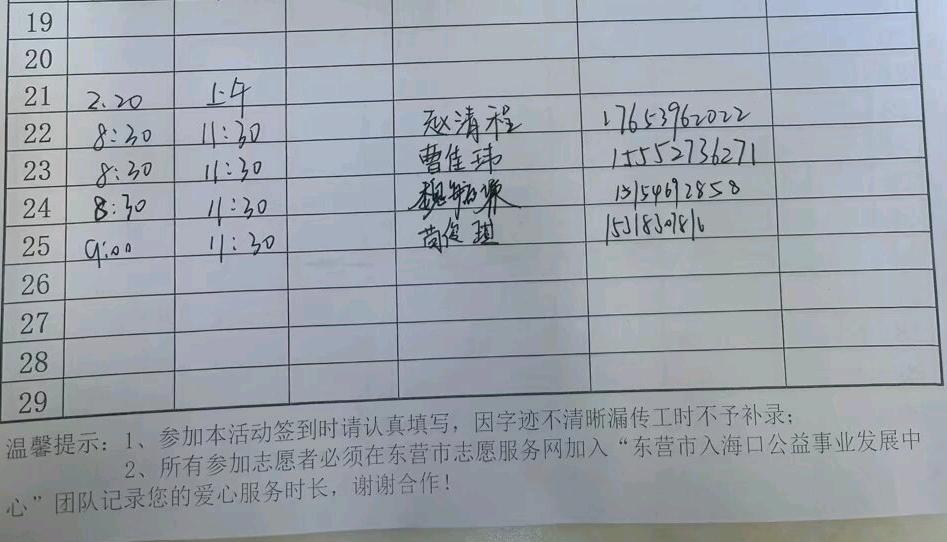 19
20
21 2.20 上午
22 8:30 11:30 赵清程 17653962022
23 8:30 11:30 曹佳玮 15552736271
24 8:30 11:30 13154692858
25 9:00 11:30 苘俊琪
26
27
28
29
温馨提示：1、参加本活动签到时请认真填写，因字迹不清晰漏传工时不予补录；
2、所有参加志愿者必须在东营市志愿服务网加入“东营市入海口公益事业发展中
心”团队记录您的爱心服务时长，谢谢合作！